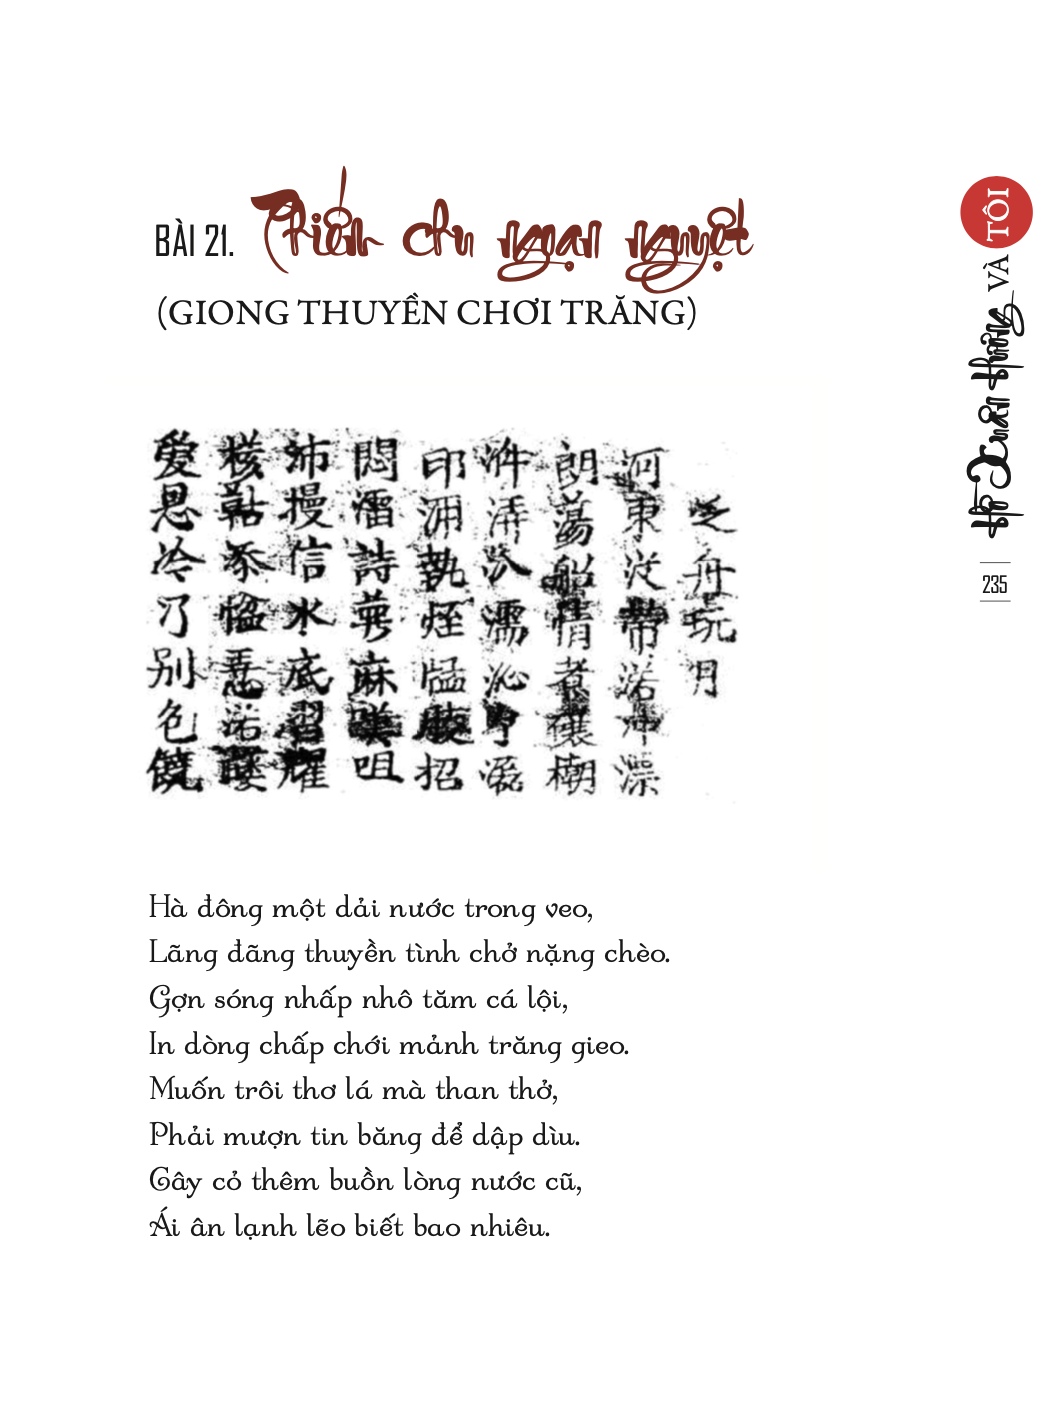 BÀI 21. Phiếm chu ngạn nguyệt
(GIONG THUYỀN CHƠI TRĂNG)
舟玩月
河東
朗蕩船情煮穰樃
執
悶溜詩麻咀
沛摱信水底習耀
愛恩冷乃别色饒
Hà đông một dải nước trong veo,
Lãng đãng thuyền tình chở nặng chèo.
Gợn sóng nhấp nhô tăm cá lội,
In dòng chấp chới mảnh trăng gieo.
Muốn trôi thơ lá mà than thở,
Phải mượn tin băng để dập dìu.
Cây cỏ thêm buồn lòng nước cũ,
Ái ân lạnh lẽo biết bao nhiêu.
Hồ Xuân Hương VÀ TÔI
235